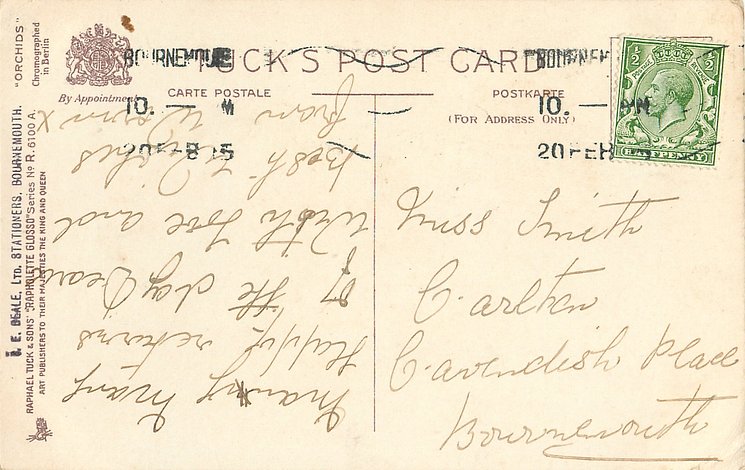 "ORCHIDS"
Chromographed
in Berlin
By Appointment
TUCK'S POST CARD
CARTE POSTALE
POSTKARTE
(FOR ADDRESS ONLY)
BOURNEMOU
10. — M
20 FEB 15
BOURNEM
10. — AM
20 FEB
½ ½
POSTAGE REVENUE
HALF PENNY
Many Many
Happy returns
of the day Dear
With love and
Best Wishes
from
x
Miss Smith
Carlton
Cavendish Place
Bournemouth
J. E. BEALE, LTD. STATIONERS, BOURNEMOUTH.
RAPHAEL TUCK & SONS' "RAPHOLETTE GLOSSO" Series No R. 6100 A.
ART PUBLISHERS TO THEIR MAJESTIES THE KING AND QUEEN